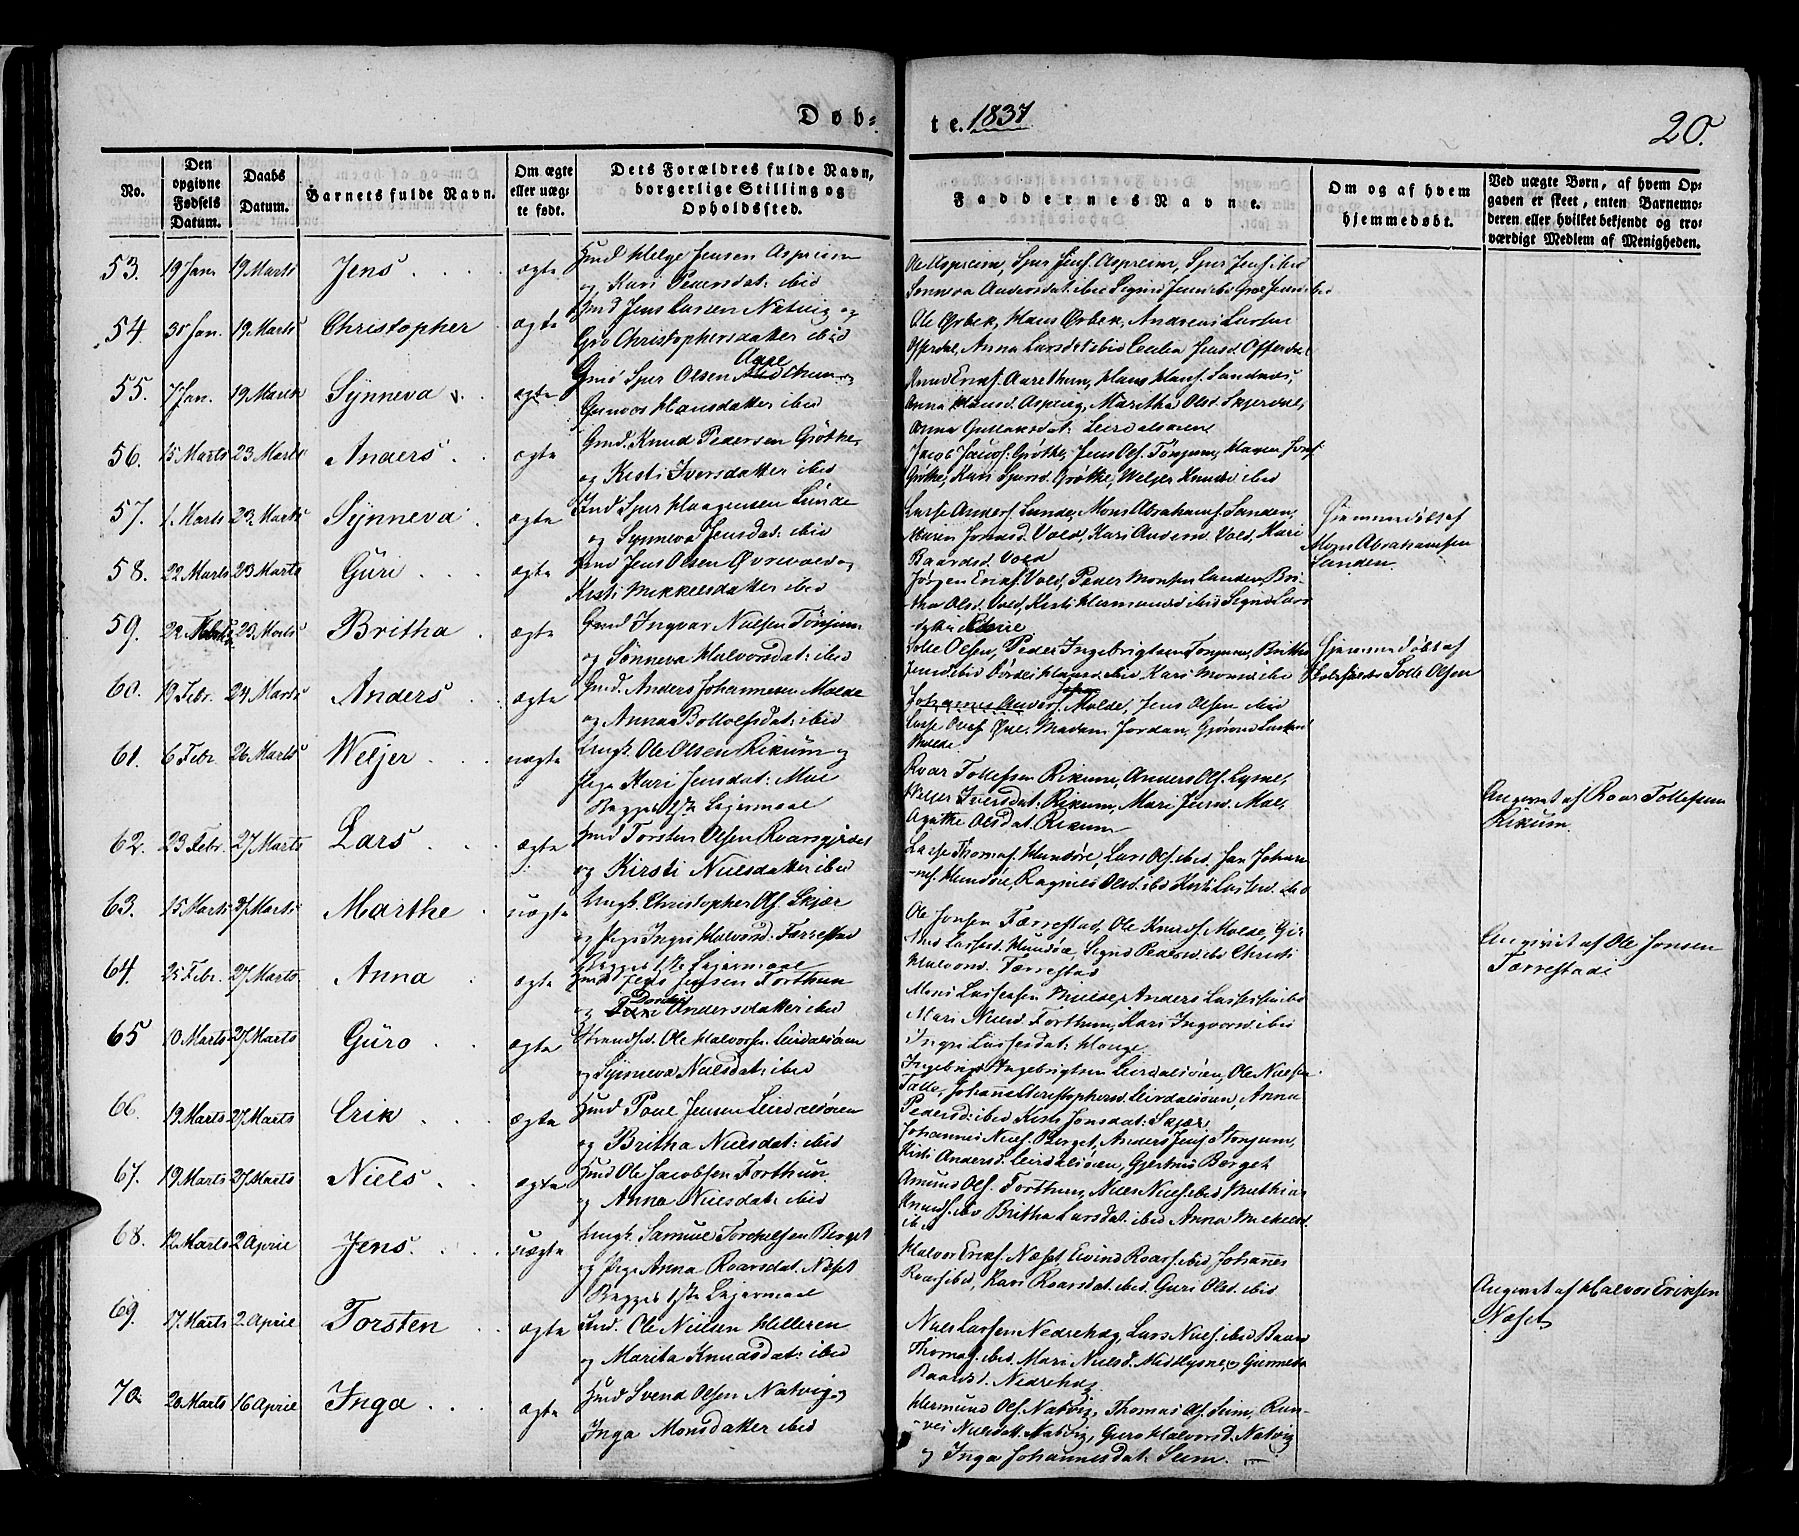 Døb-
te. 1837
20.
No.
Den opgivne Fødsels Datum.
Daabs Datum.
Barnets fulde Navn.
Om ægte eller uæg-te født.
Dets Forældres fulde Navn, borgerlige Stilling og Opholdssted.
Faddernes Navne.
Om og af hvem hjemmedøbt.
Ved uægte Børn, af hvem Op-gaven er skeet, enten Barnemo-deren eller hvilket bekjendt og tro-værdigt Medlem af Menigheden.
53. 19 Jan. 19 Marts Jens ægte Hmd Helge Jensen Aspreim
og Kari Pedersdat: ibid
54. 30 Jan. 19. Marts Christopher ægte Hmd Jens Larsen Natvig og
Gro Christophersdatter ibid
Ole Ørbek, Hans Ørbek, Andreas Larsen
Offerdal, Anna Larsdat ibid Cecilia Jensd. Offerdal
55. 7 Jan. 19 Marts Synneva ægte Gmd Sjur Olsen
Hansdatter ibid
Knud Eriks. Aarethun, Hans Hans. Sandnes,
Anna Hansd. Maritha Olsd. Skjerdal,
Anna Leirdalsøren
56. 15 Marts 23 Marts Anders ægte Gmd. Knud Pedersen Grøthe
og Kirsti Iversdatter ibid
57. 1 Marts 23 Marts Synneva ægte Hmd Sjur Haagensen Lunde
og Synneva Jensdat: ibid
Lasse Anders. Lunde, Mons Abrahams. Sanden,
Jonsd. Vold, Kari Andersd. Vold, Kari
Baardsd. Vold
Hjemmedøbt af
Mons Abrahamsen
Sanden.
58. 22 Marts 23 Marts Guri ægte Hmd Jens Olsen
Kirsti Mikkelsdatter ibid
Jørgen Eriks. Vold, Peder Monsen Sanden, Bri-
tha Olsd. Vold, Kirsti Hermundsd ibid
59. 22 23 Marts Britha ægte Gmd Ingvar Nielsen Tønjum
og Sønneva Halvorsdat: ibid
Tolle Olsen, Peder Ingebrigtsen Tønjum, Britha
Hjemmedøbt af
Tolle Olsen
60. 19 Febr. 24 Marts Anders ægte Gmd. Anders Johannesen Molde
og Anna Botolfsdat: ibid
Johannes Anders. Molde, Jens Olsen ibid
Madam Jordan,
Molde
61. 6 Febr. 26 Marts Weljer uægte Ungk. Ole Olsen Rikum og
Pige Kari Jensdat: Moe
Begges 1ste Lejermaal
Roar Tollefsen Rikum, Anders Ols. Lysne,
Weljer Iversdat: Rikum, Mari Jensd. Moe,
Agathe Olsdat: Rikum
Angivet af Roar Tollefsen
Rikum.
62. 23 Febr. 27 Marts Lars ægte Hmd Torsten Olsen
og Kirsti Nielsdatter ibid
Lasse Thomas. Hundere, Lars Ols. ibid, Jan Johan-
nes. Hundere, Ragnild Olsd. ibid
63. 15 Marts 27 Marts Marthe uægte Ungk. Christopher Ols. Skjær
og Pige Ingri Halvorsd. Færrestad
Begges 1ste Lejermaal
Ole Jonsen Færrestad, Ole Knuds. Molde,
Halvorsd. Færrestad
Angivet af Ole Jonsen
Færrestad
64. 25 Febr. 27 Marts Anna ægte Hmd Jens Jensen Forthun
og Andersdatter ibid
Mari Nielsd. Forthun, Kari Ingvorsd ibid
Ingri Lassesdat: Hauge
65 10 Marts 27 Marts Guro ægte Strandsd. Ole Halvors. Leirdalsøren
og Synneva Nielsdat: ibid
Ingebrigt Ingebrigtsen Leirdalsøren, Ole Nielsen
Leirdalsøren, Anna
Pedersd: ibid Kirsti Jonsdat: Skjær
66. 19 Marts 27 Marts Erik ægte Hmd Poul Jensen Leirdalsøren
og Britha Nielsdat: ibid
Johannes Niels. Berget, Anders Jens.
Kirsti Andersd. Leirdalsøren, Gjertrud Berget
67. 19 Marts 27 Marts Niels ægte Hmd Ole Jacobsen Forthun
og Anna Nielsdat: ibid
Amund Ols. Forthun, Niels Niels. ibid Mathias
Knuds. ibid Britha Larsdat: ibid Anna
ibid
68. 12 Marts 2 April Jens uægte Ungk. Samuel Torkelsen Berget
og Pige Anna Roarsdat. Næset
Begges 1ste Lejermaal
Halvor Eriks. Næset, Eivind Roars. ibid Johannes
Roars. ibid, Kari Roarsdat. ibid, Guri Olsd. ibid
Angivet af Halvor Eriksen
Næset
69. 17. Marts 2. April Torsten ægte Hmd. Ole Nielsen Helleren
og Marita Knudsdat: ibid
Niels Larsen Nedrehæg, Lars Niels. ibid Baard
Thomas. ibid. Mari Nielsd. Midtlysne
Baardsd. Nedrehæg
70. 20 Marts 16 April Inga ægte Hmd Svend Olsen Natvig og
Inga Monsdatter ibid
Hermund Ols. Natvig, Thomas Ols. Seim, Ran-
vei Nielsdat: Natvig, Guro Halvorsd. Natvig
og Inga Johannesdat: Seim.